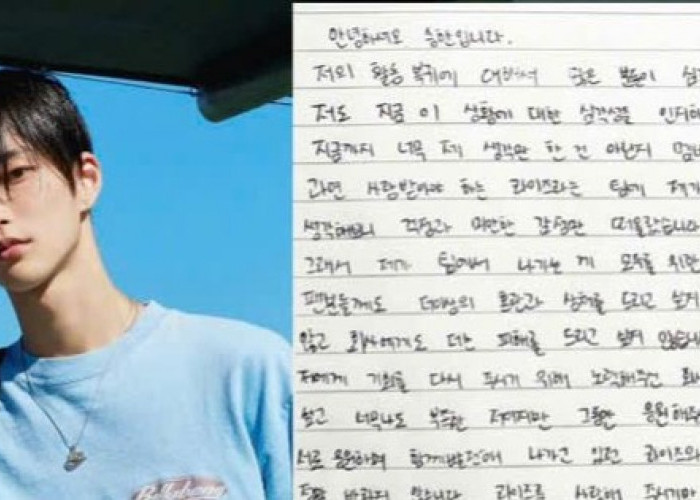 안녕하세요 승한입니다.
저의 활동 복귀에 대해서 많은 분들이
저도 지금 이 상황에 대한 심각성을
지금까지 너무 제 생각만 한 건 아닌지
과연 사랑받아야 하는 라이즈라는 팀에 제가
생각해보니 걱정과 미안한 감정만 떠올랐습니다
그래서 제가 팀에서 나가는 게 모두를 위한
팬분들께도 더이상의 혼란과 상처를 드리고 싶지
않고 회사에게도 더는 피해를 드리고 싶지 않습니
저에게 기회를 다시 주시기 위해 노력해주신 회사
싶고 너무나도 부족한 저에게지만 그동안 응원해주
서로 응원하며 함께 나가고 있던 라이즈의
바라지 않습니다. 라이즈를 사랑해 주시기만